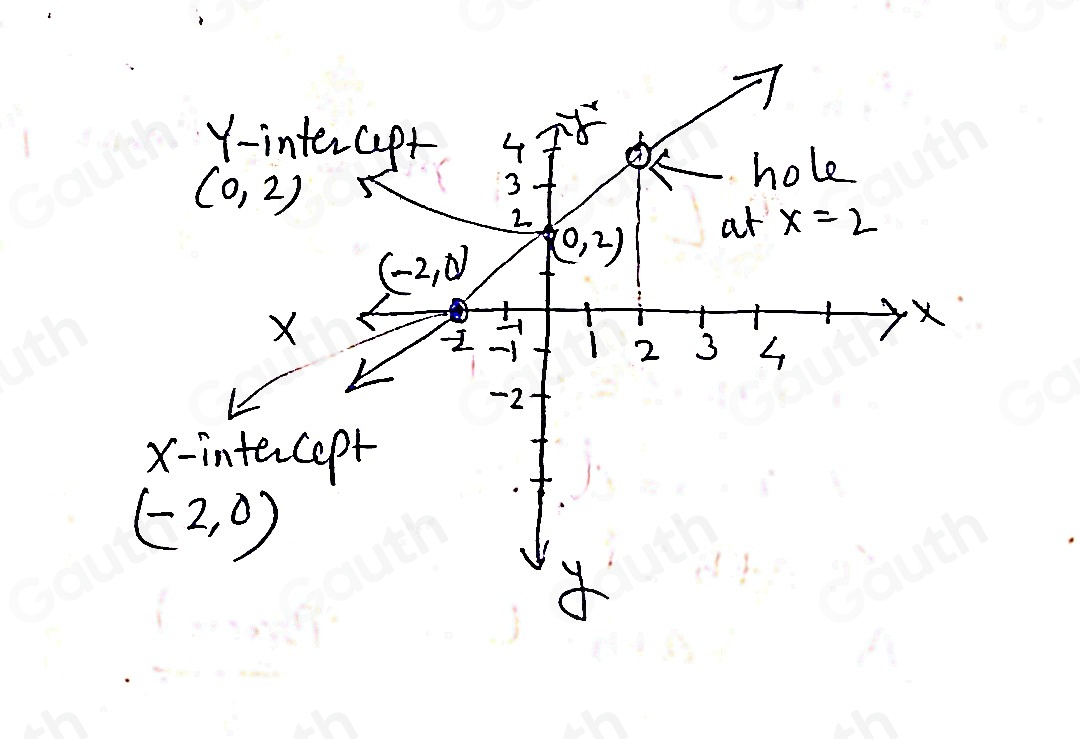 Y-intercept
(0, 2)
y
4
3
2
(0,2)
hole
at x = 2
(-2,0)
X
X
-2
-1
-1
1
2
3
4
-2
X-intercept
(-2,0)
y
Gauth